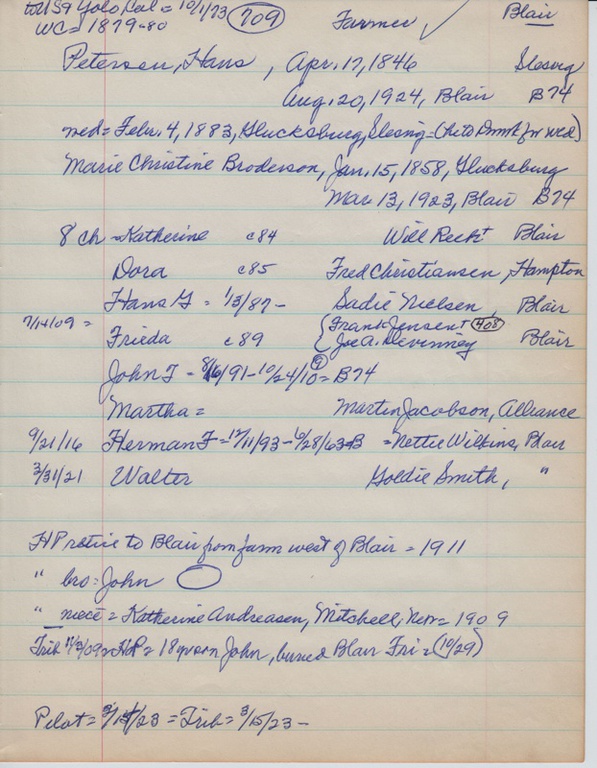 to US9 Yolo Cal = 10/1/73 (709) Farmer ✓ Blair
WC = 1879-80
Petersen, Hans, Apr. 17, 1846 Slesvig
Aug. 20, 1924, Blair B74
med = Febr. 4, 1883, Glucksburg, Slesvig = (he to Dnmk for wed)
Marie Christine Broderson, Jan. 15, 1858, Glucksburg
Mar. 13, 1923, Blair B74
8 ch = Katherine c84 Will Reckt Blair
Dora c85 Fred Christiansen, Hampton
Hans G = 1/3/87 - Sadie Nielsen, Blair
7/14/09 = Frieda c89 { Frank Jensen † (408)
Joe A. McVinney Blair
John F - 8/6/91 - 10/24/10 (9) = B74
Martha = Martin Jacobson, Alliance
9/21/16 Herman F = 12/11/93 - 6/28/63 B = Nettie Wilkins, Blair
3/31/21 Walter Goldie Smith, "
HP retire to Blair from farm west of Blair = 1911
" bro = John
" niece = Katherine Andreasen, Mitchell, = 1909
Trib 11/3/09 = HP = 18 yr son John, buried Blair Fri = (10/29)
Pilot = 3/14/23 = Trib = 3/15/23 -